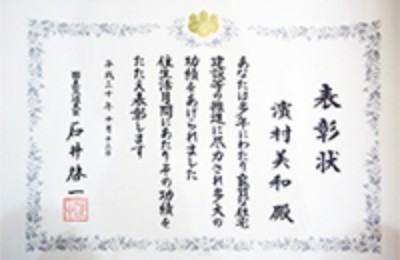 表彰状
濱村美和 殿
あなたは多年にわたり良質な住宅
建設等の推進に尽力され多大の
功績をあげられました
住生活月間にあたりその功績を
たたえ表彰します
平成三十年 十月十三日
国土交通大臣 石井啓一